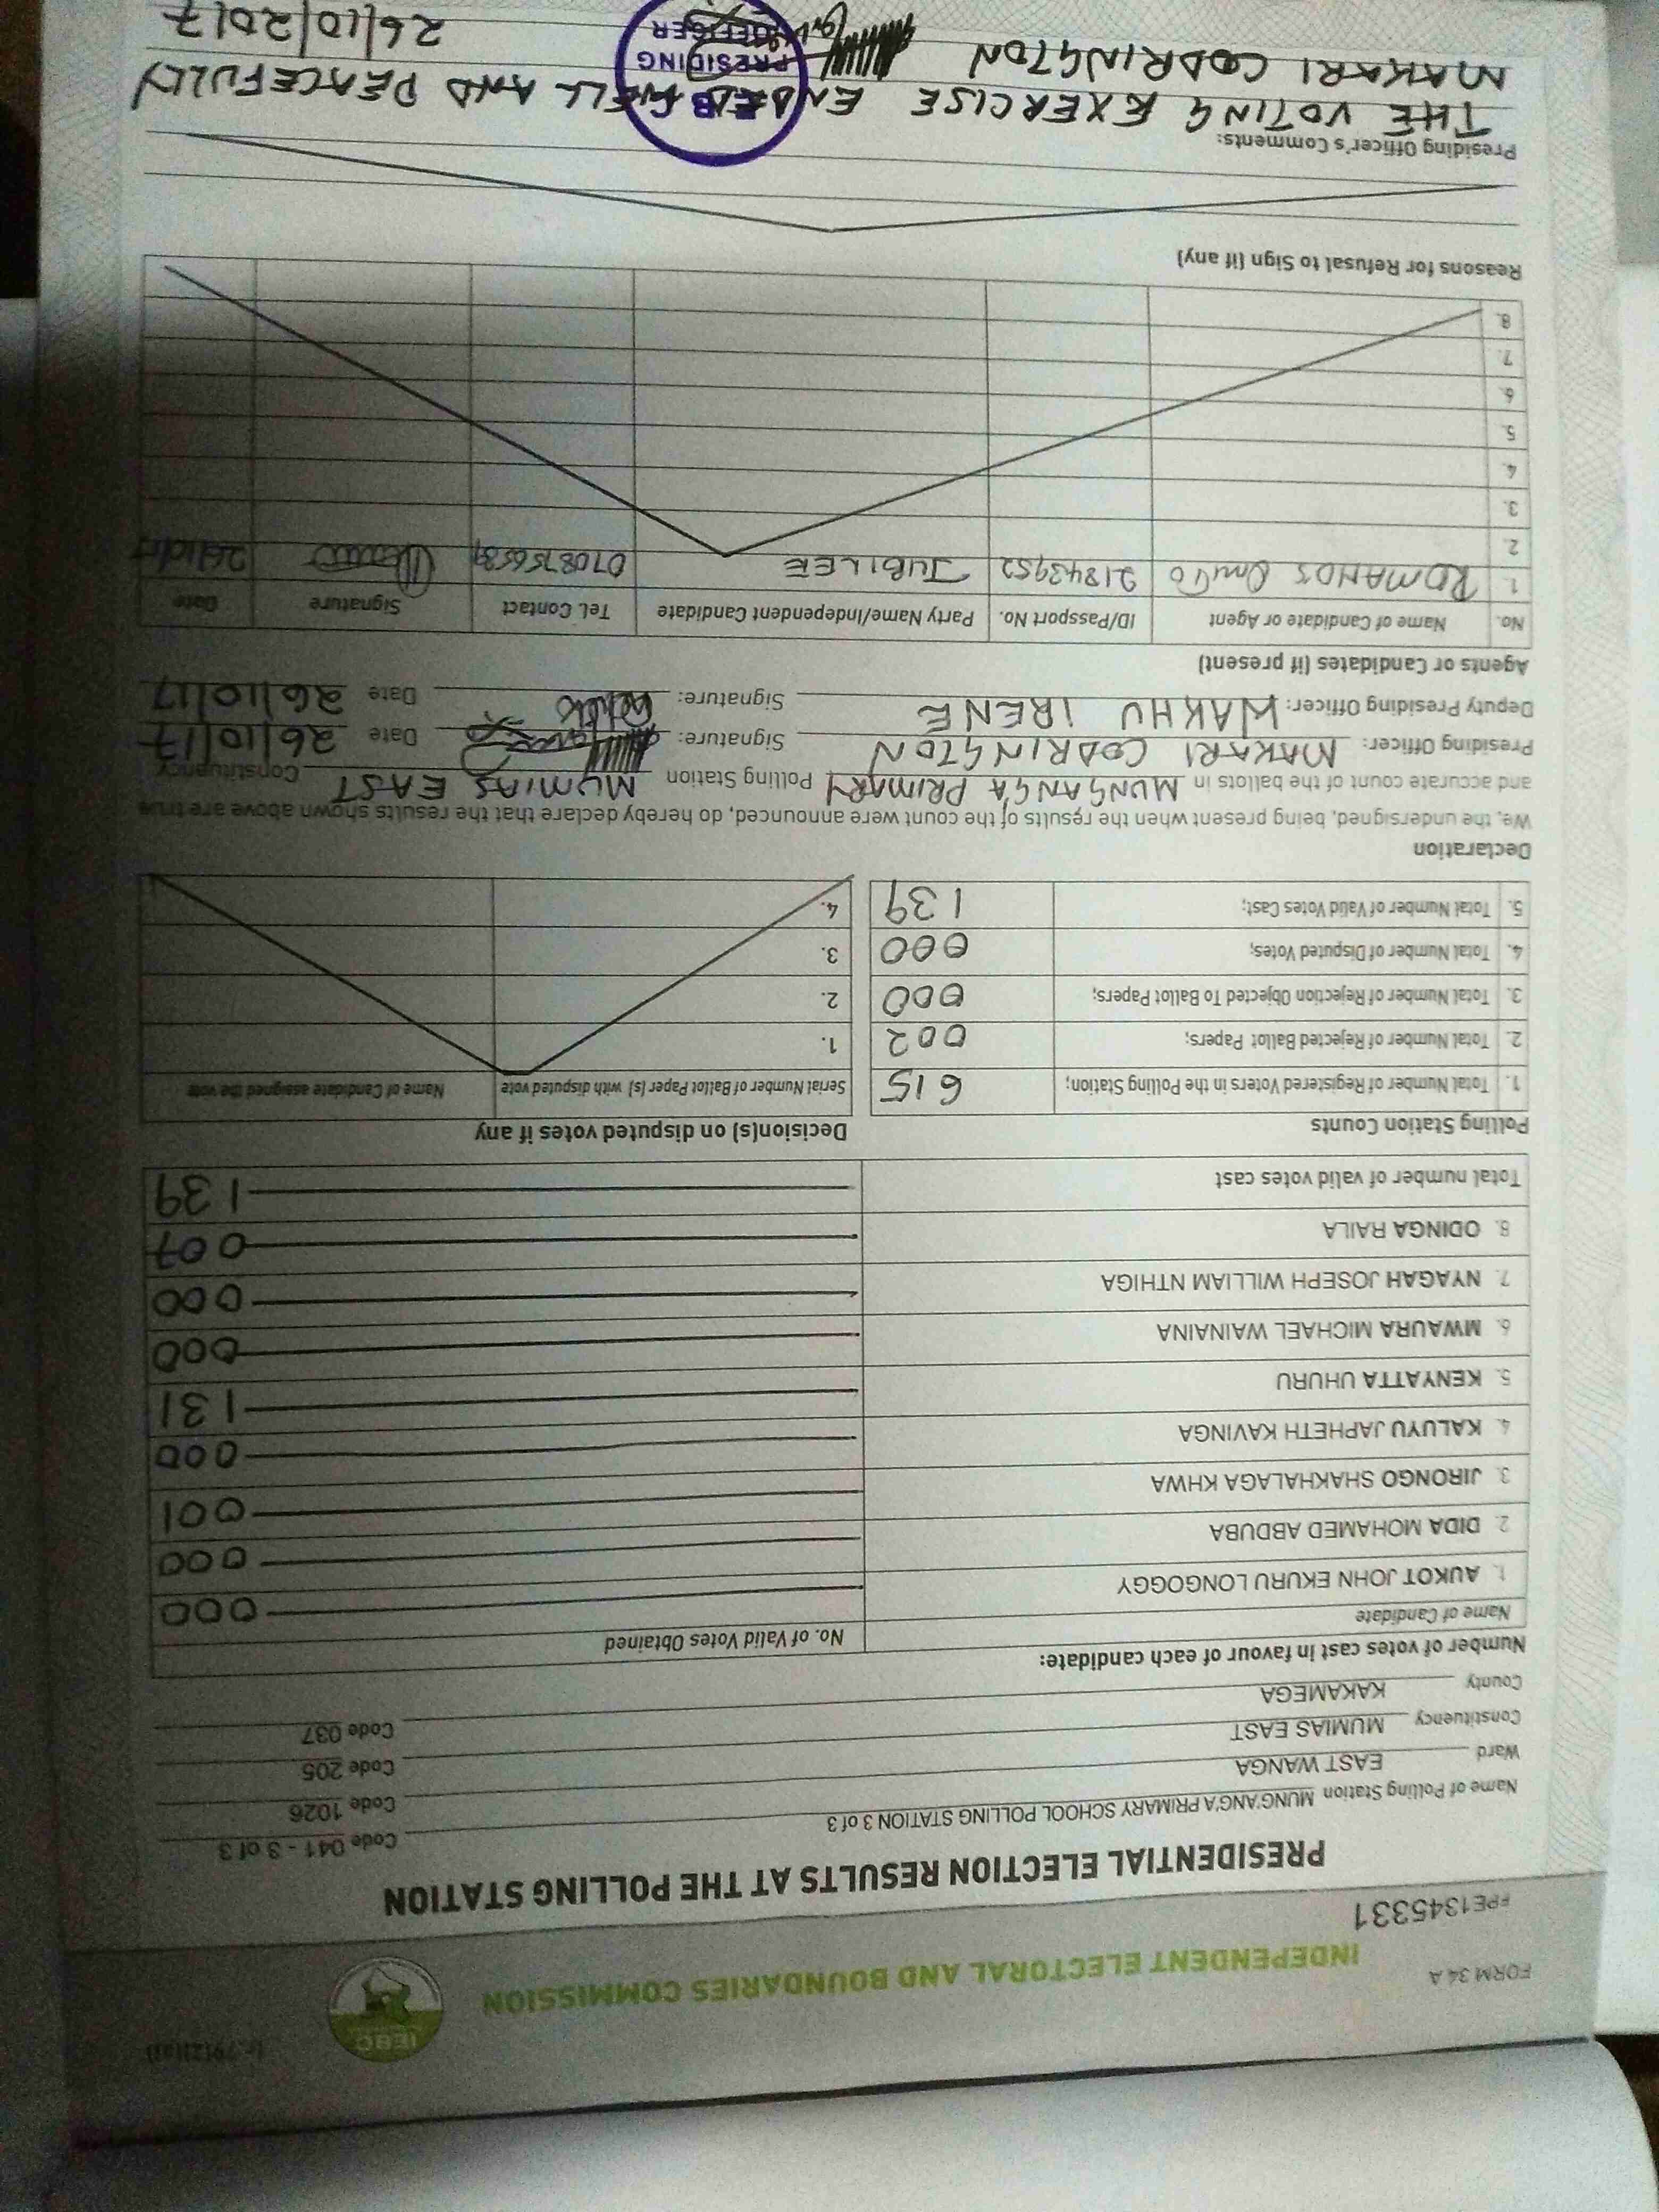 [r.79(2)(a)]
IEBC
FORM 34 A
INDEPENDENT ELECTORAL AND BOUNDARIES COMMISSION
FPE1345331
PRESIDENTIAL ELECTION RESULTS AT THE POLLING STATION
Name of Polling Station MUNG'ANG'A PRIMARY SCHOOL POLLING STATION 3 of 3 Code 041 - 3 of 3
Ward EAST WANGA Code 1026
Constituency MUMIAS EAST Code 205
County KAKAMEGA Code 037
Number of votes cast in favour of each candidate:
Name of Candidate No. of Valid Votes Obtained
1. AUKOT JOHN EKURU LONGOGGY 000
2. DIDA MOHAMED ABDUBA 000
3. JIRONGO SHAKHALAGA KHWA 001
4. KALUYU JAPHETH KAVINGA 000
5. KENYATTA UHURU 131
6. MWAURA MICHAEL WAINAINA 000
7. NYAGAH JOSEPH WILLIAM NTHIGA 000
8. ODINGA RAILA 007
Total number of valid votes cast 139
Polling Station Counts
1. Total Number of Registered Voters in the Polling Station; 615
2. Total Number of Rejected Ballot Papers; 002
3. Total Number of Rejection Objected To Ballot Papers; 000
4. Total Number of Disputed Votes; 000
5. Total Number of Valid Votes Cast; 139
Decision(s) on disputed votes if any
Serial Number of Ballot Paper (s) with disputed vote Name of Candidate assigned the vote
1.
2.
3.
4.
Declaration
We, the undersigned, being present when the results of the count were announced, do hereby declare that the results shown above are true
and accurate count of the ballots in MUNGANGA PRIMARY Polling Station MUMIAS EAST Constituency
Presiding Officer: MAKARI CODRINGTON Signature: Date 26/10/17
Deputy Presiding Officer: WAKHU IRENE Signature: Date 26/10/17
Agents or Candidates (if present)
No. Name of Candidate or Agent ID/Passport No. Party Name/Independent Candidate Tel. Contact Signature Date
1. ROMANUS 21843952 JUBILEE
2.
3.
4.
5.
6.
7.
8.
Reasons for Refusal to Sign (if any)
Presiding Officer's Comments:
THE VOTING EXERCISE ENDED WELL AND PEACEFULLY
MAKARI CODRINGTON 26/10/2017
PRESIDING
OFFICER